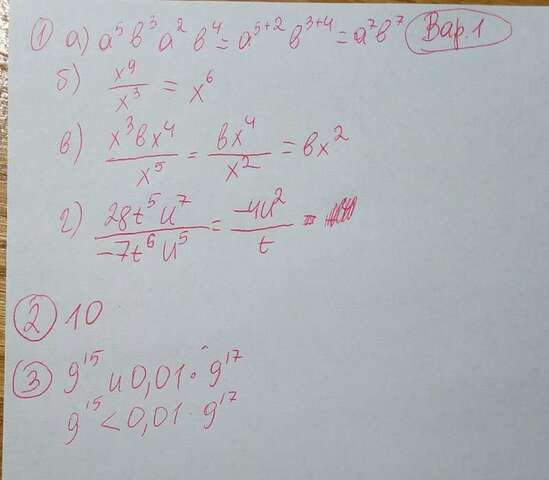 ① а) a⁵b³a²b⁴ = a⁵⁺²b³⁺⁴ = a⁷b⁷ Вар. 1
б) x⁹/x³ = x⁶
в) x³bx⁴/x⁵ = bx⁴/x² = bx²
г) 28t⁵u⁷/-7t⁶u⁵ = -4u²/t =
② 10
③ 9¹⁵ и 0,01 · 9¹⁷
9¹⁵ < 0,01 · 9¹⁷